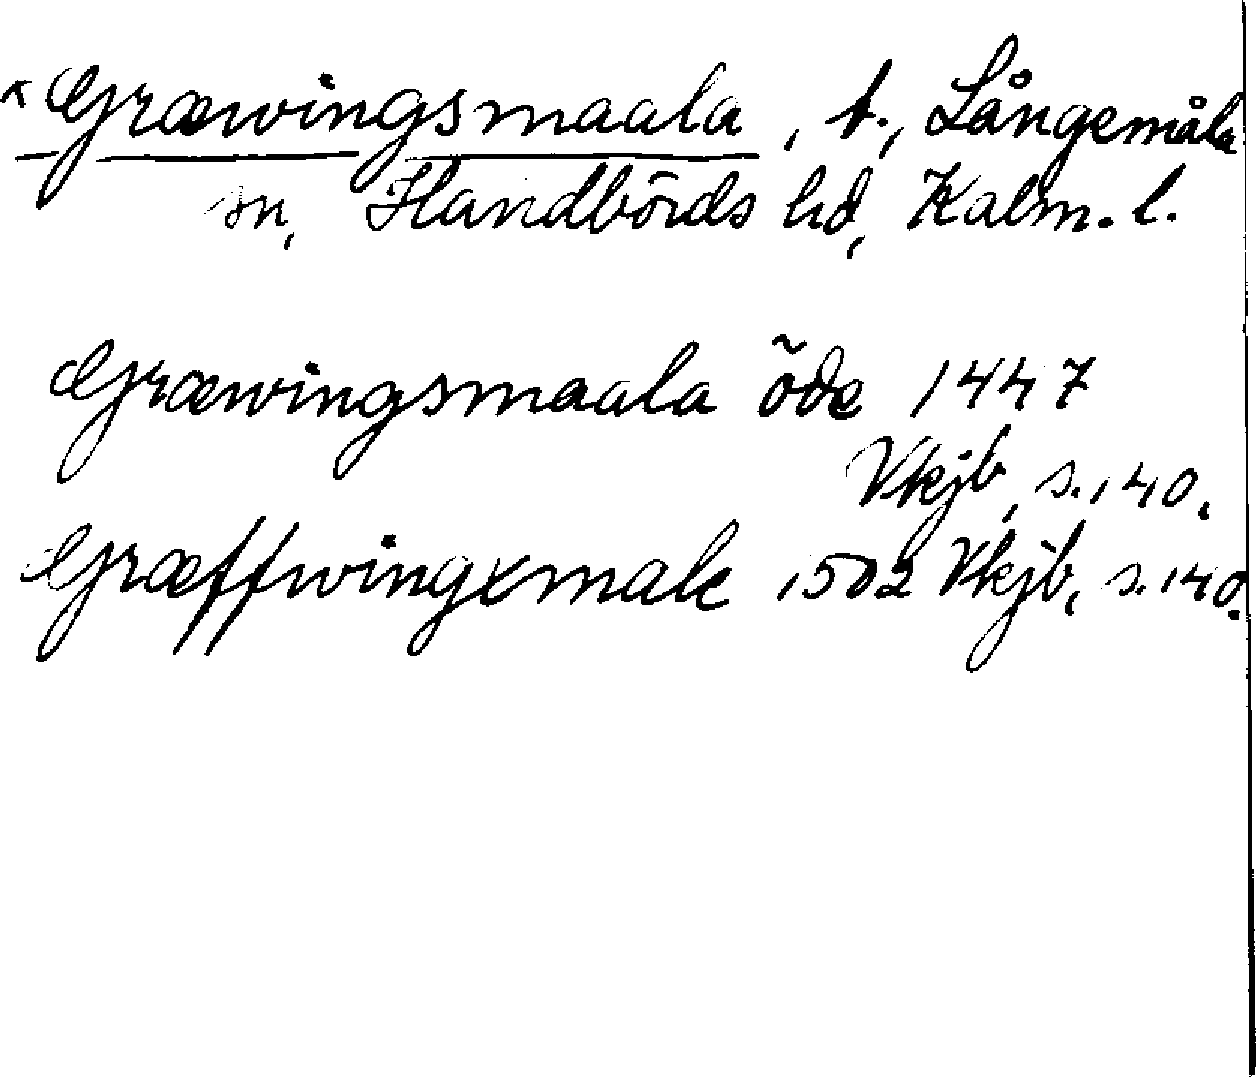 * Græwingsmaala, t., Långemåla
sn, Handbörds hd, Kalm. l.
Græwingsmaala öde 1447
Vkjb, s. 140.
Græffwingxmale 1502 Vkjb, s. 140.